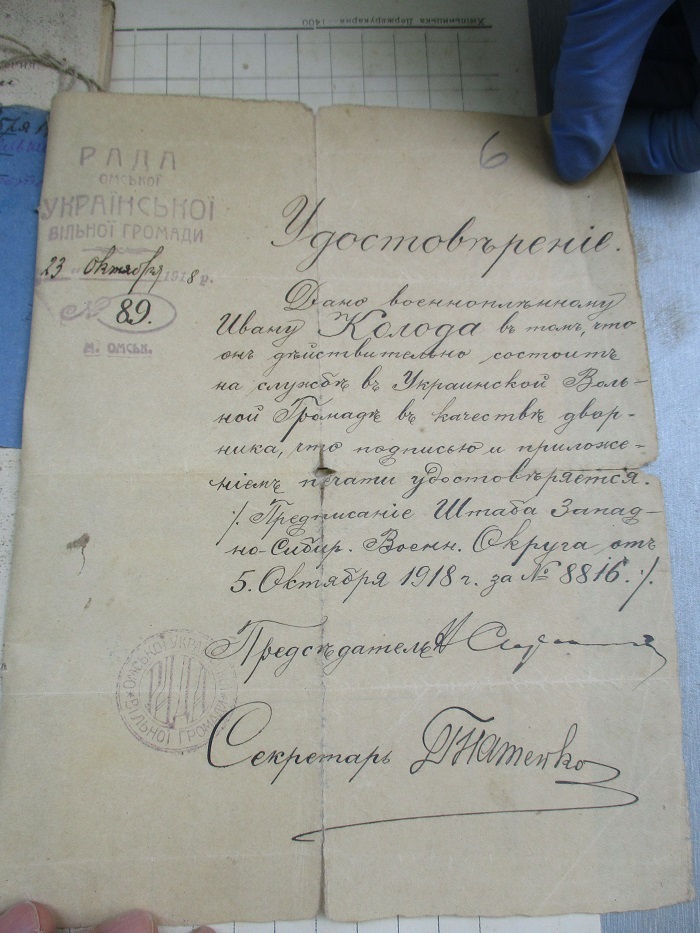 Хмільницька Держдрукарня 1400
РАДА
ОМСЬКОЇ
УКРАЇНСЬКОЇ
ВІЛЬНОЇ ГРОМАДИ
23 октября 1918 р.
№ 89.
м. ОМСЬК.
6
Удостовѣреніе.
Дано военноплѣнному
Ивану Колода въ томъ, что
онъ дѣйствительно состоитъ
на службѣ въ Украинской Воль-
ной Громадѣ въ качествѣ двор-
ника, что подписью и приложе-
ніемъ печати удостовѣряется.
/. Предписаніе Штаба Запад-
но-Сибир. Военн. Округа отъ
5. Октября 1918 г. за № 8816. /.
Предсѣдатель
ОМСЬКОЇ УКРАЇН
РАДА
ВІЛЬНОЇ ГРОМАДИ
Секретарь Гнатенко